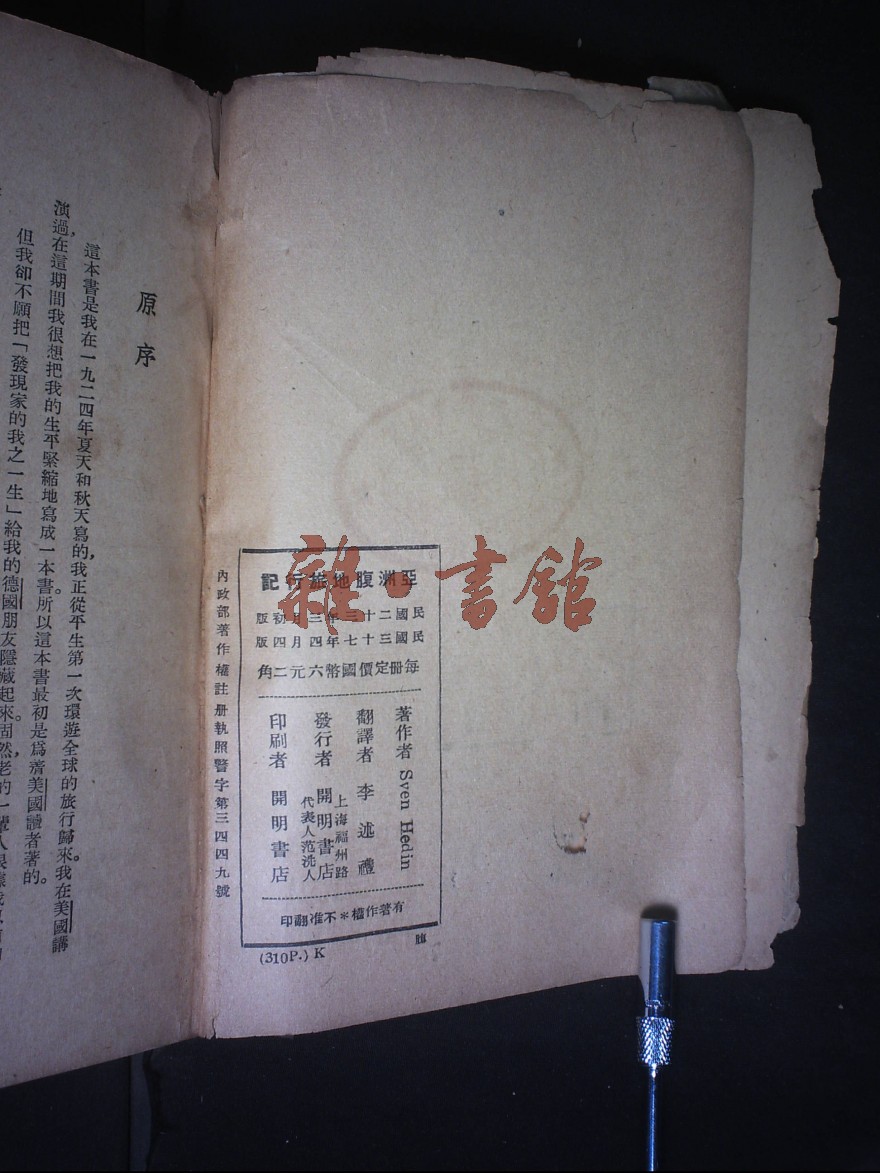 亞洲腹地旅行記
民國二十三年三月初版
民國三十七年四月四版
每冊定價國幣六元二角
著作者 Sven Hedin
翻譯者 李述禮
發行者 上海福州路
開明書店
代表人范洗人
印刷者 開明書店
有著作權＊不准翻印
(310P.) K
內政部著作權註册執照警字第三四四九號
雜·書館
原序
這本書是我在一九二四年夏天和秋天寫的，我正從平生第一次環遊全球的旅行歸來。我在美國講
演過，在這期間我很想把我的生平緊縮地寫成一本書。所以這本書最初是爲着美國讀者著的。
但我卻不願把「發現家的我之一生」給我的德國朋友隱藏起來。固然，老的一輩人